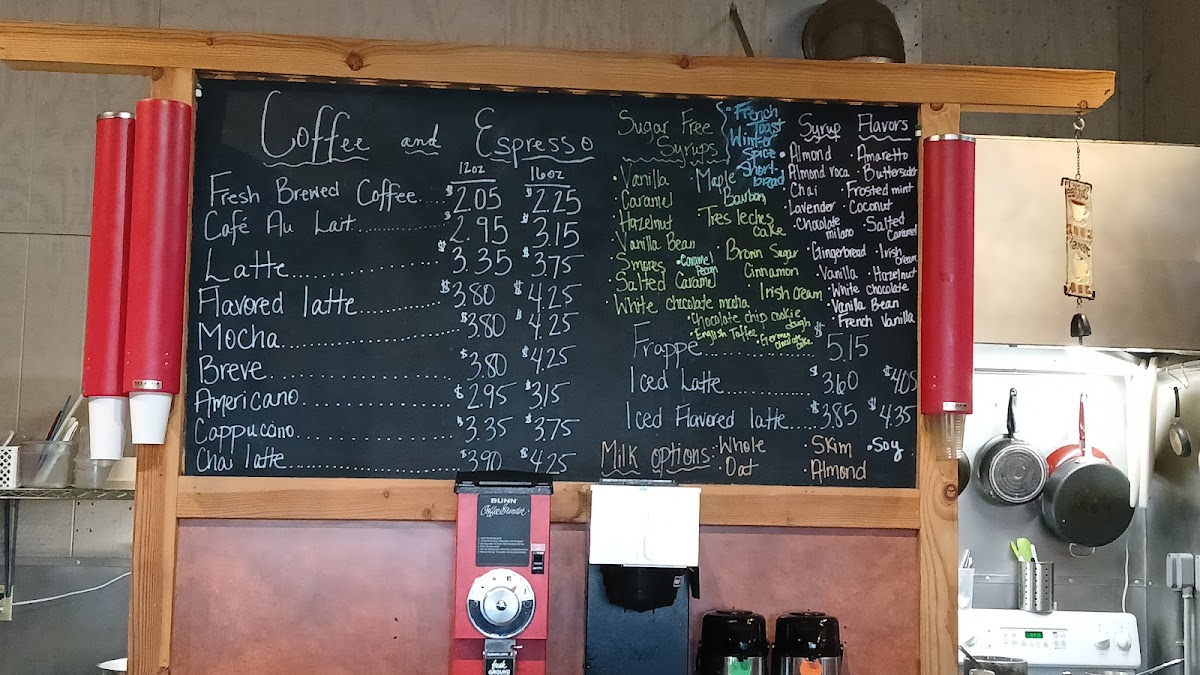 Coffee and Espresso
12oz 16oz
Fresh Brewed Coffee.... $2.05 $2.25
Café Au Lait........... $2.95 $3.15
Latte.................. $3.35 $3.75
Flavored latte......... $3.80 $4.25
Mocha.................. $3.80 $4.25
Breve.................. $3.80 $4.25
Americano.............. $2.95 $3.15
Cappucano.............. $3.35 $3.75
Chai latte............. $3.90 $4.25
Sugar Free
Syrups
French
Toast
Winter
Spice
Short-
bread
· Vanilla · Maple
· Caramel Bourbon
· Hazelnut · Tres leches
cake
· Vanilla Bean
· Smores · Caramel
Pecan
· Brown Sugar
Cinnamon
· Salted Caramel · Irish Cream
· White chocolate mocha
· Chocolate chip cookie
dough
· English Toffee · German
chocolate
cake
Syrup Flavors
· Almond · Amaretto
· Almond roca
· Chai · Frosted mint
· Lavender · Coconut
· Chocolate
milano
· Salted
Caramel
· Gingerbread · Irish
Cream
· Vanilla · Hazelnut
· White chocolate
· Vanilla Bean
· French Vanilla
Frappe................ $5.15
Iced Latte............ $3.60 $4.05
Iced Flavored latte..... $3.85 $4.35
Milk options: · Whole · Skim · Soy
· Oat · Almond
BUNN
Coffee Grinder
fresh
GROUND